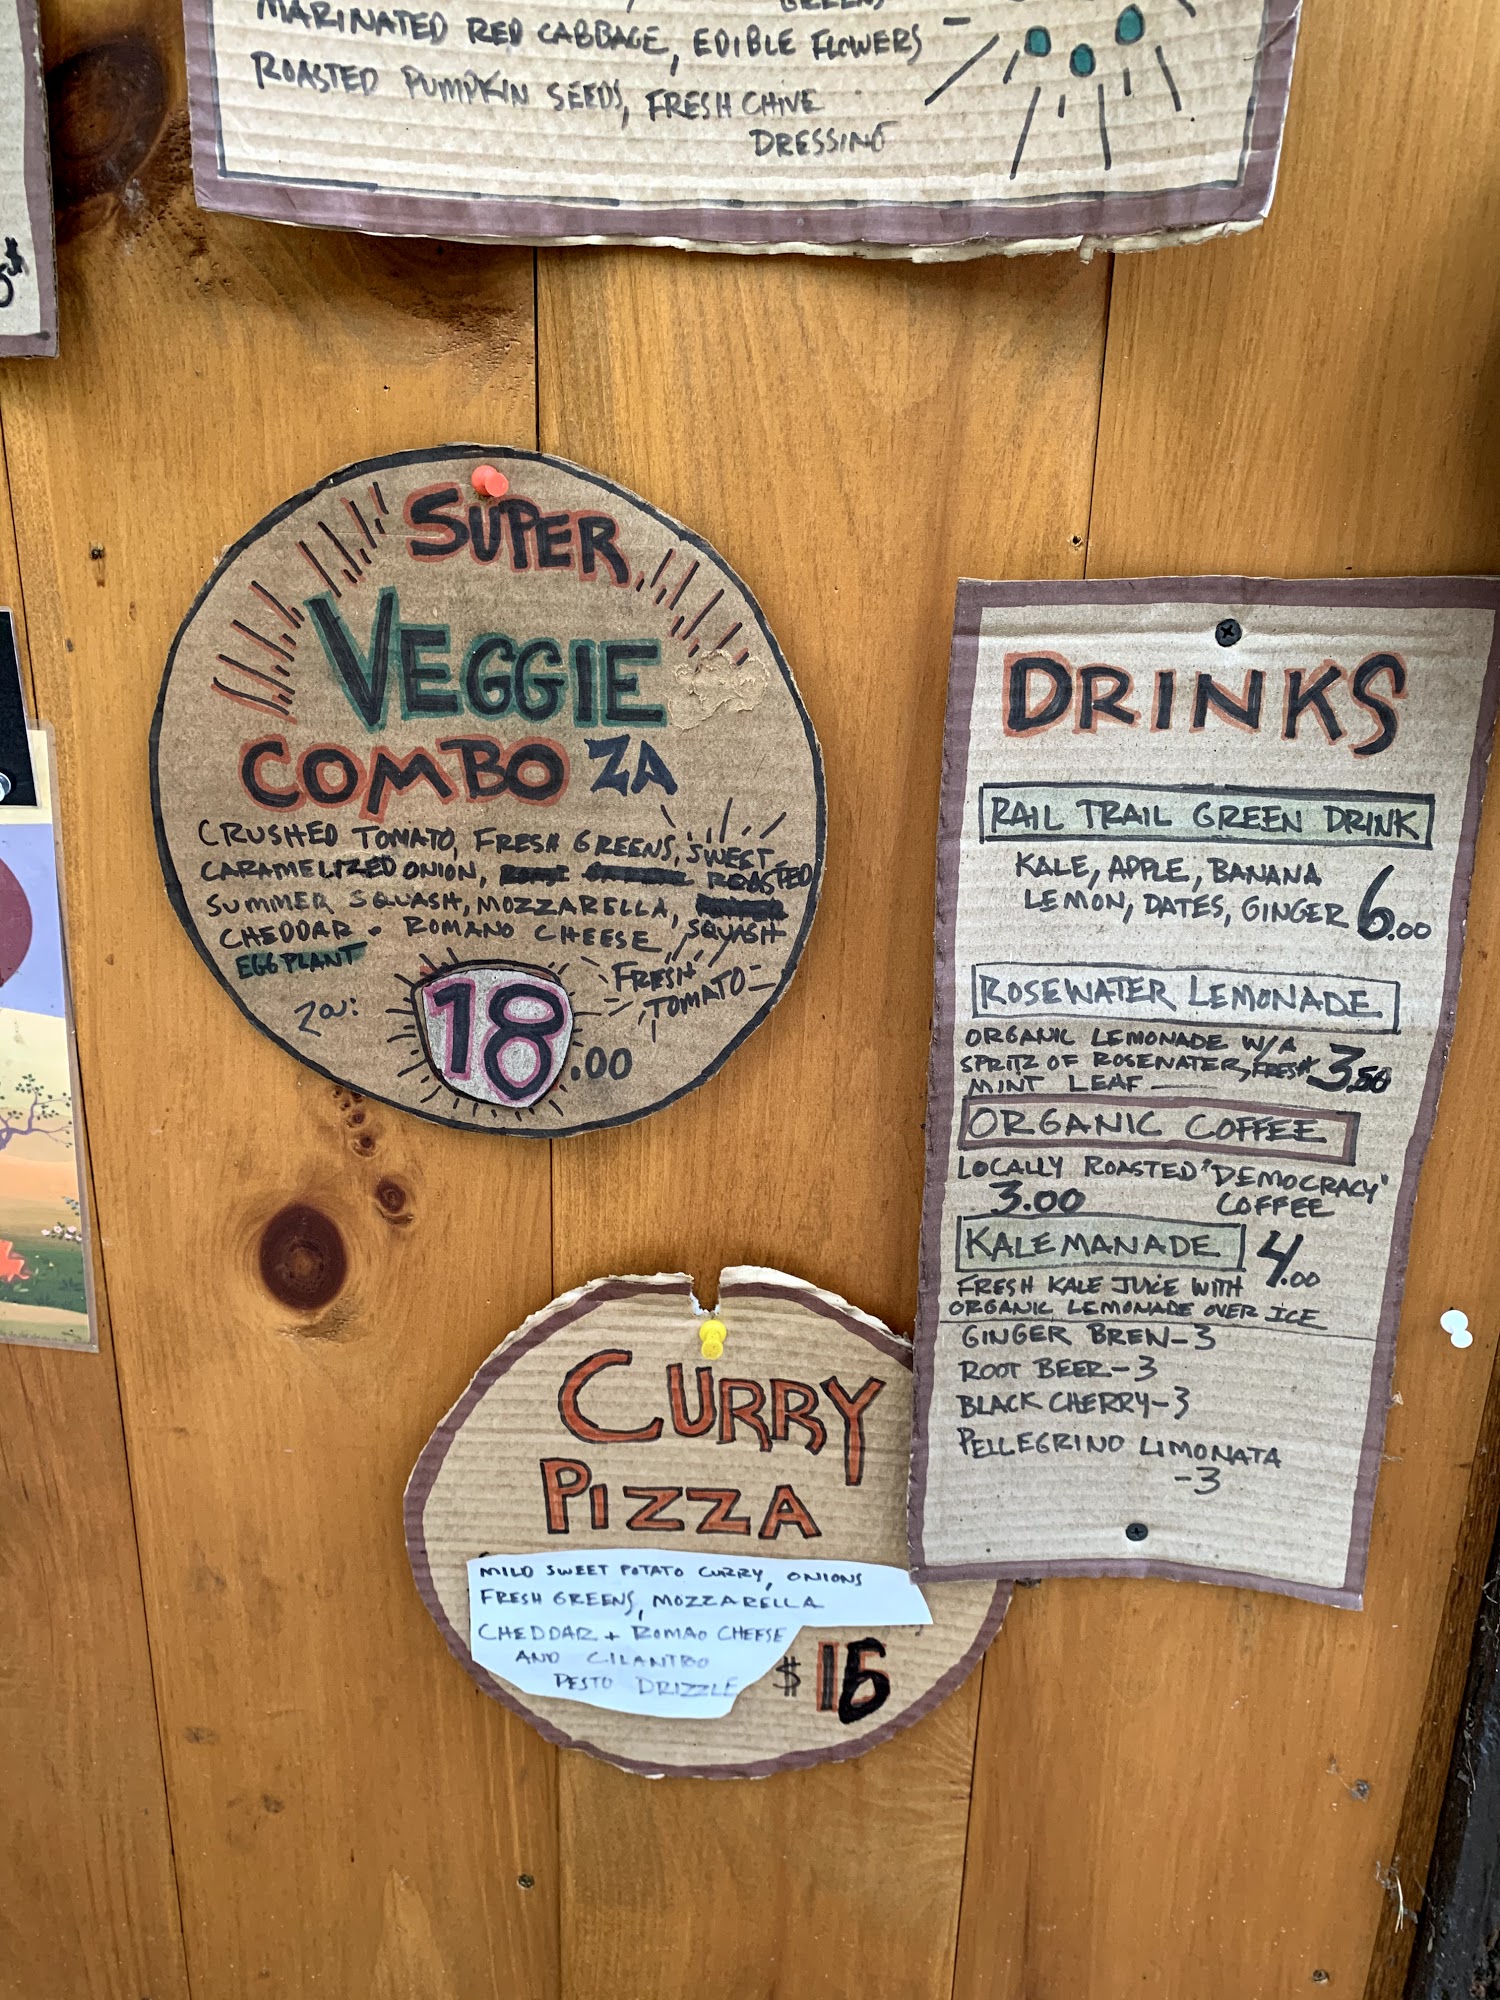 MARINATED RED CABBAGE, EDIBLE FLOWERS
ROASTED PUMPKIN SEEDS, FRESH CHIVE
DRESSING
SUPER
VEGGIE
COMBO ZA
CRUSHED TOMATO, FRESH GREENS, SWEET
CARAMELIZED ONION, ROASTED
SUMMER SQUASH, MOZZARELLA,
CHEDDAR + ROMANO CHEESE, SQUASH
EGGPLANT
FRESH
TOMATO
18.00
DRINKS
RAIL TRAIL GREEN DRINK
KALE, APPLE, BANANA
LEMON, DATES, GINGER 6.00
ROSEWATER LEMONADE
ORGANIC LEMONADE W/A
SPRITZ OF ROSEWATER, FRESH 3.50
MINT LEAF
ORGANIC COFFEE
LOCALLY ROASTED "DEMOCRACY"
3.00 COFFEE
KALEMANADE 4.00
FRESH KALE JUICE WITH
ORGANIC LEMONADE OVER ICE
GINGER BREW-3
ROOT BEER-3
BLACK CHERRY-3
PELLEGRINO LIMONATA
-3
CURRY
PIZZA
MILD SWEET POTATO CURRY, ONIONS
FRESH GREENS, MOZZARELLA
CHEDDAR + ROMAO CHEESE
AND CILANTRO
PESTO DRIZZLE